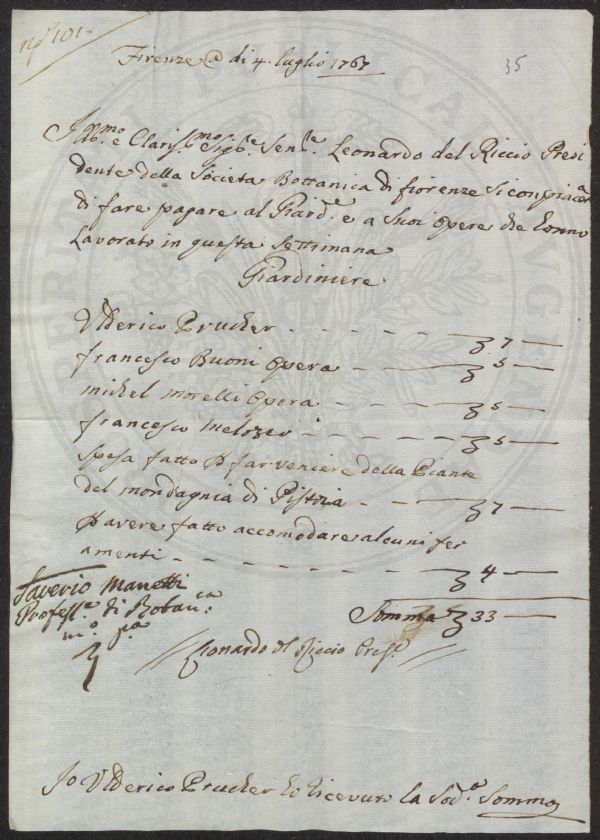 nº 101
35
Firenze @ di 4. luglio 1767
Ill.mo e Claris.mo Sig.re Sen.re Leonardo del Riccio Presi
dente della Societa Bottanica di fiorenze si conpiacer
di fare pagare al Giard.e e a Suoi opere che Lonno
Lavorato in questa Settimana
Giardiniere
Ulderico Prucher 7
francesco Buoni opera 5
michel morelli opera 5
francesco melozzi 5
Spesa fatto p far veniere della Piante
del mondagnia di Pistoia 7
p avere fatto accomodare alcuni fer
amenti 4
Saverio Manetti
Profess.e di Botan.ca
m.o p.a
Somma 33
Leonardo del Riccio Pres.e
Jo Ulderico Prucher ho Ricevuto la Sod.a Somma